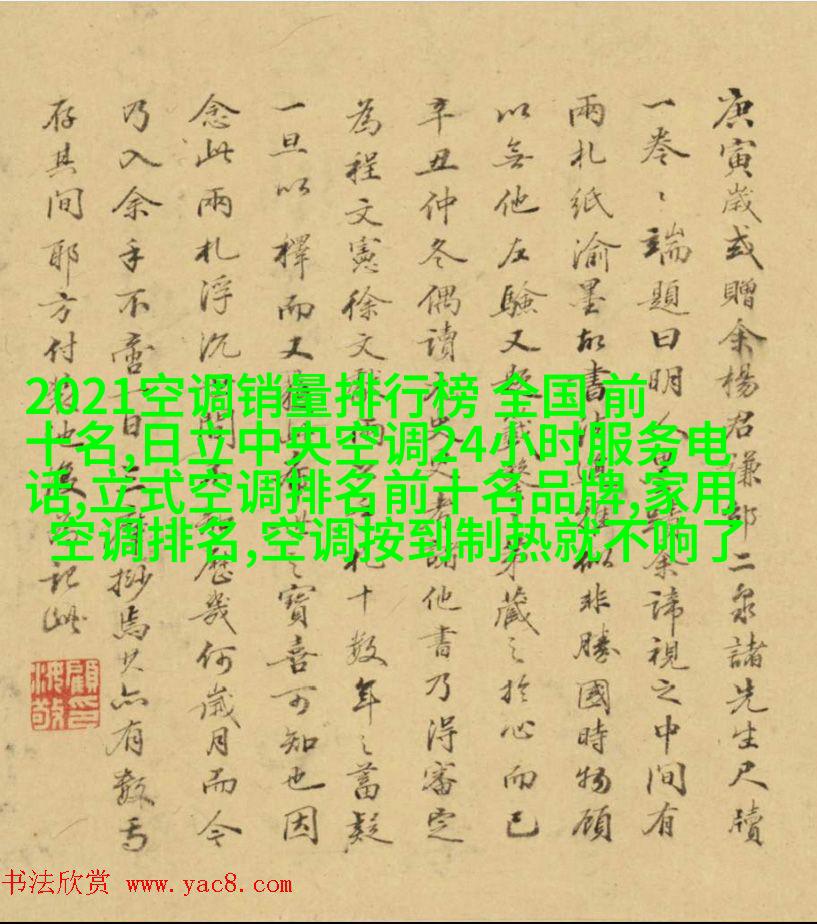 庚寅歲或贈余楊君謙邵二泉諸先生尺牘
一卷〻端題曰明人墨余諦視之中間有
兩札紙渝墨故書似非勝國時物顧
以無他左驗又藏〻於心而已
辛丑仲冬偶讀他書乃得審定
為程文憲徐文獻兩札十數年〻蓄疑
一旦以釋而又寶喜可知也因
念此兩札浮沉間歷幾何歲月而今
乃入余手不啻焉其亦有數焉
存其間耶方付裝池漫為記此
2021空调销量排行榜 全国 前
十名,日立中央空调24小时服务电
话,立式空调排名前十名品牌,家用
空调排名,空调按到制热就不响了
书法欣赏 www.yac8.com